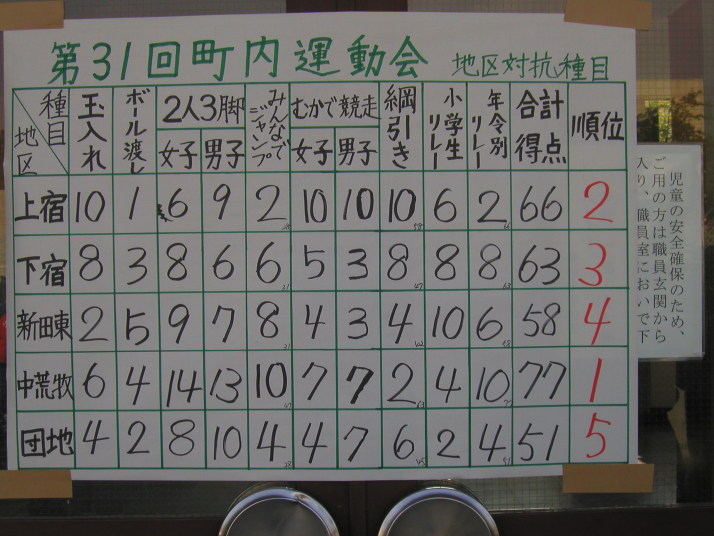 第31回町内運動会 地区対抗種目
種目 地区 玉入れ ボール渡し 2人3脚 女子 男子 みんなでジャンプ むかで競走 女子 男子 綱引き 小学生リレー 年令別リレー 合計得点 順位
上宿 10 1 6 9 2 10 10 10 6 2 66 2
下宿 8 3 8 6 6 5 3 8 8 8 63 3
新田東 2 5 9 7 8 4 3 4 10 6 58 4
中荒牧 6 4 14 13 10 7 7 2 4 10 77 1
団地 4 2 8 10 4 4 7 6 2 4 51 5
児童の安全確保のため、
ご用の方は職員玄関から
入り、職員室においで下